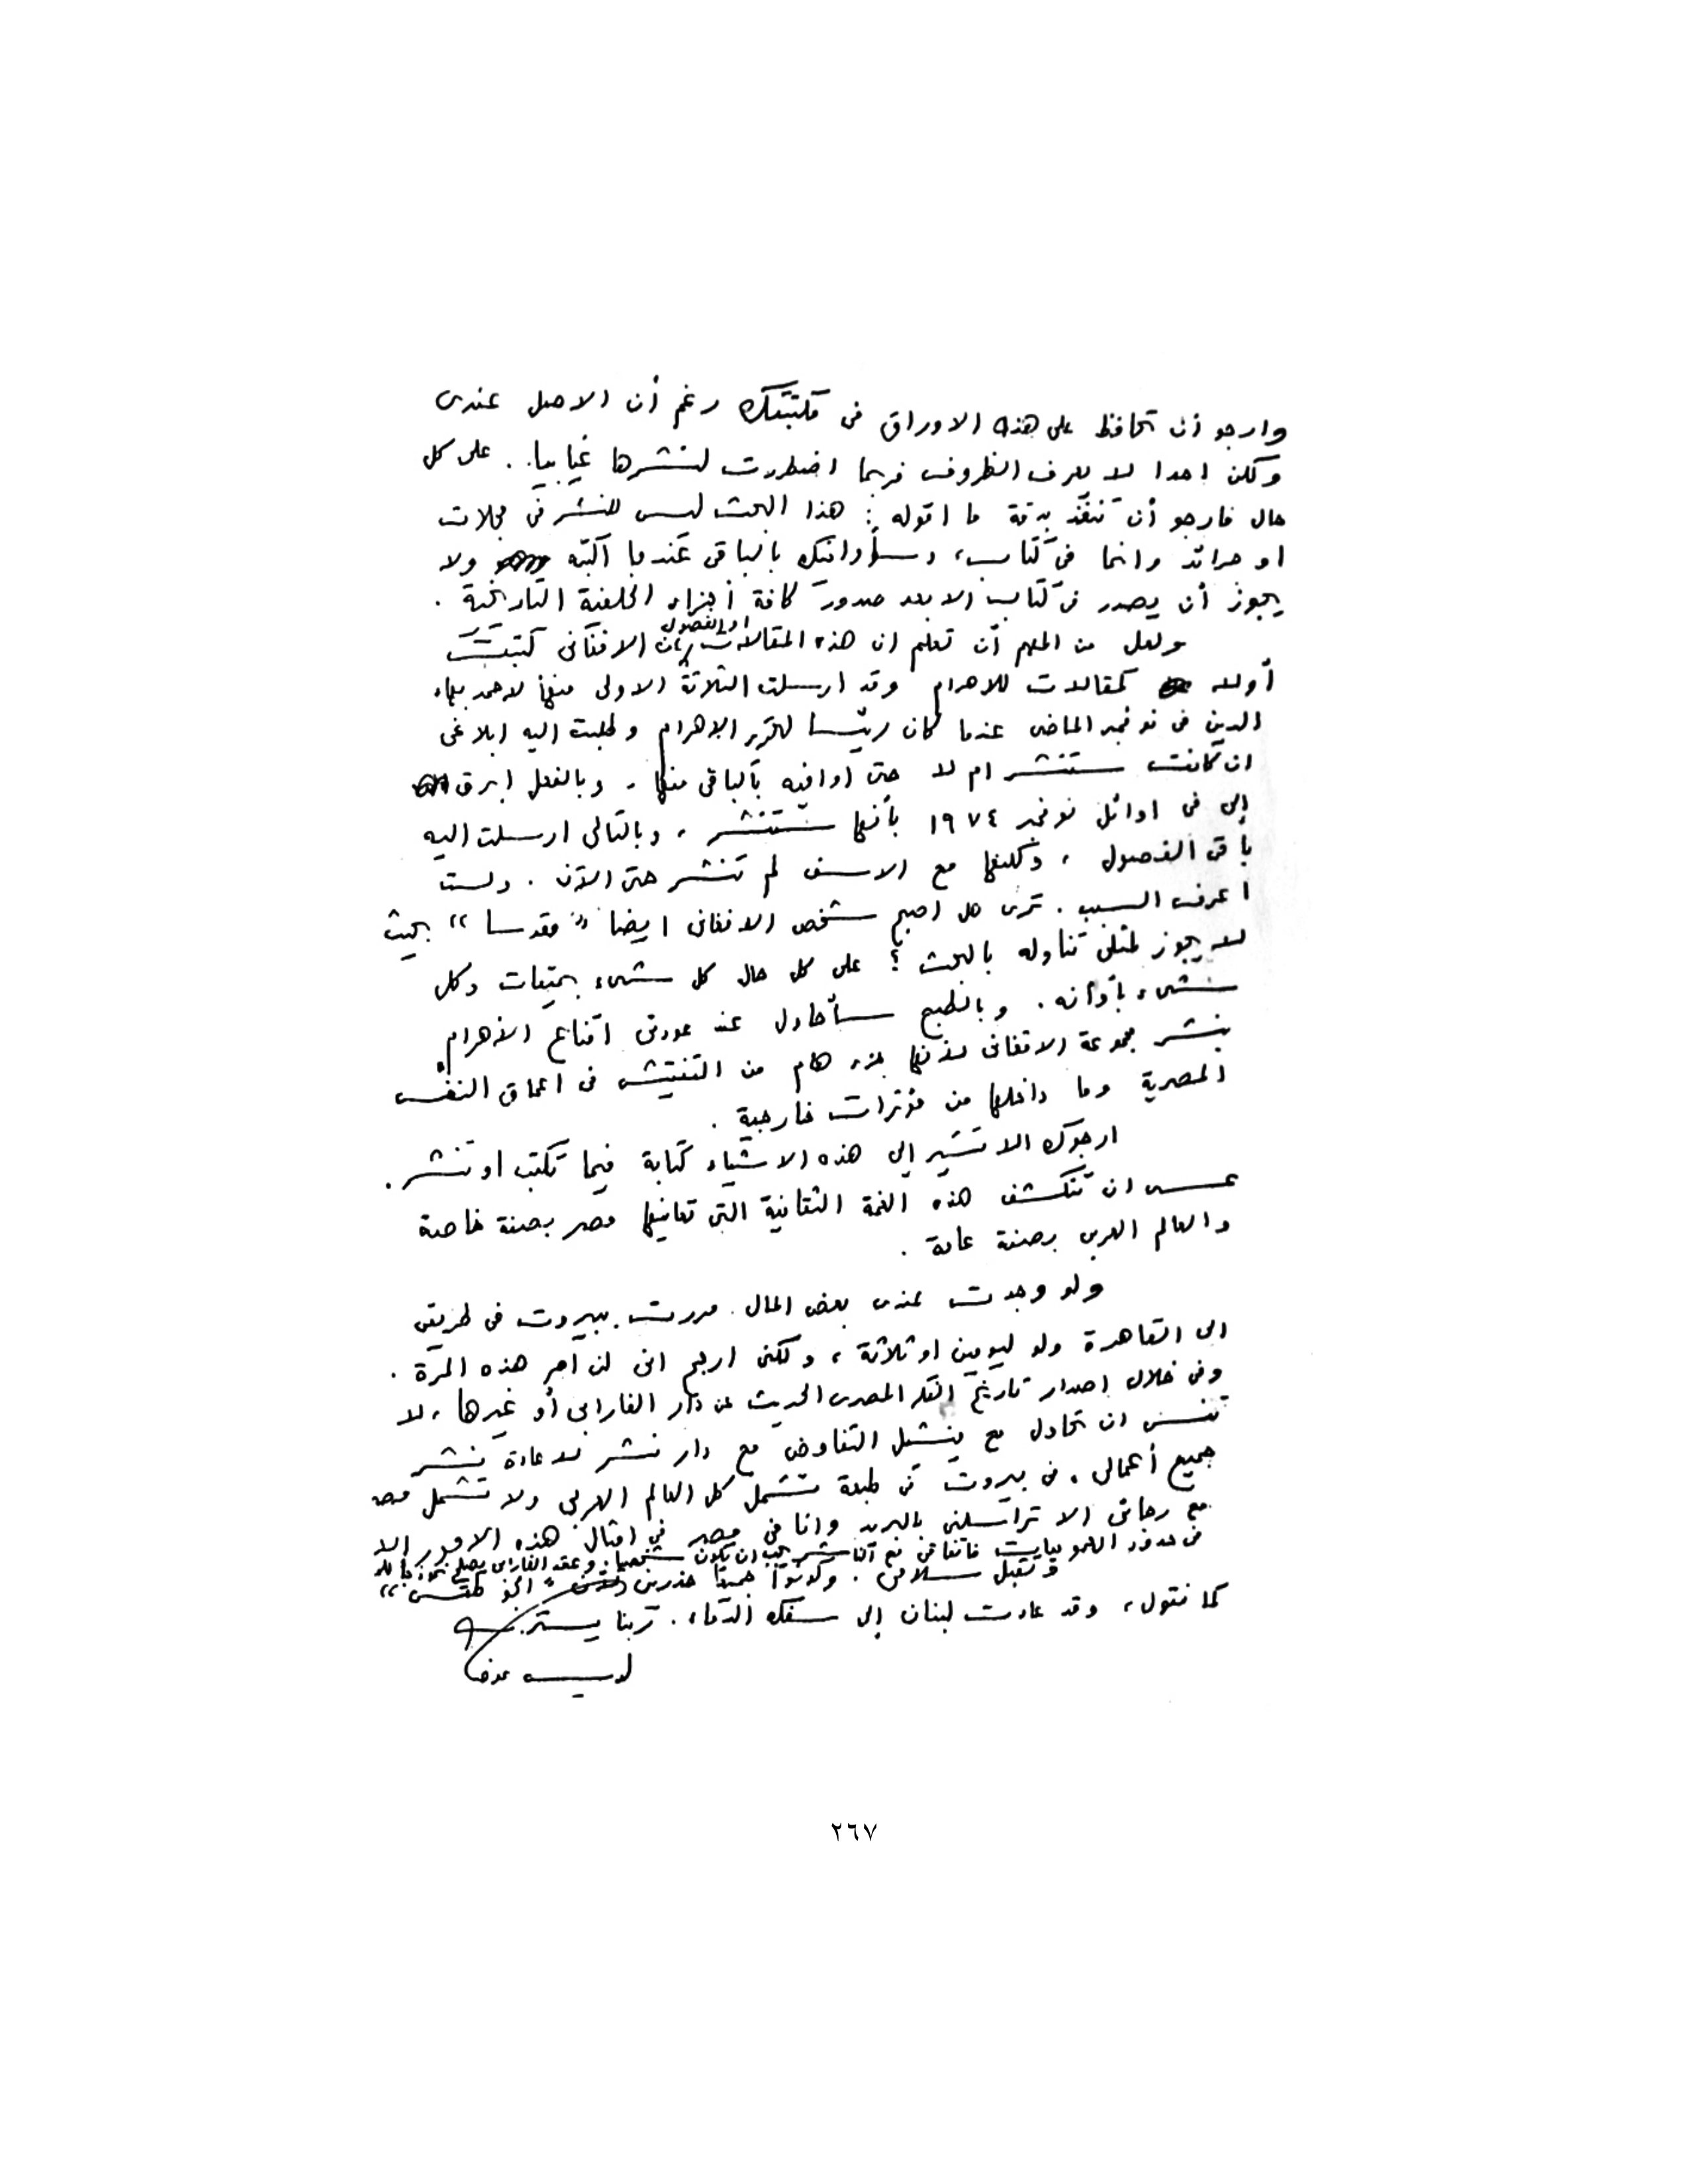 وارجو ان تحافظ على هذه الاوراق فى مكتبتك رغم أن الاصل عندى
ولكن احدا لا يعرف الظروف فربما اضطررت لنشرها غيابيا .. على كل
حال فارجو أن تنفذ بدقة ما اقوله : هذا البحث ليس للنشر فى مجلات
او جرائد وانما فى كتاب ، وسأوافيك بالباقى عندما اكتبه ولا
يجوز أن يصدر فى كتاب الا بعد صدور كافة أجزاء الخلفية التاريخية .
ولعل من المهم أن تعلم ان هذه المقالات او الفصول بشأن الافغانى كتبت
أولا كمقالات للاهرام وقد ارسلت الثلاثة الاولى منها لاحمد بهاء
الدين فى نوفمبر الماضى عندما كان رئيسا لتحرير الاهرام وطلبت اليه ابلاغى
ان كانت ستنشر ام لا حتى اوافيه بالباقى منها . وبالفعل ابرق
إلى فى اوائل نوفمبر ١٩٧٤ بأنها ستنشر ، وبالتالى ارسلت اليه
باقى الفصول ، ولكنها مع الاسف لم تنشر حتى الآن . ولست
اعرف السبب . ترى هل اصبح شخص الافغانى ايضا " مقدسا " بحيث
لا يجوز لمثلى تناوله بالبحث ؟ على كل حال كل شىء بميقات وكل
شىء بأوانه . وبالطبع سأحاول عند عودتى اقناع الاهرام
بنشر مجموعة الافغانى لانها جزء هام من التفتيش فى اعماق النفس
المصرية وما داخلها من مؤثرات خارجية .
ارجوك الا تشير إلى هذه الاشياء كتابة فيما تكتب او تنشر .
عسى ان تنكشف هذه الغمة الثقافية التى تعانيها مصر بصفة خاصة
والعالم العربى بصفة عامة .
ولو وجدت عندى بعض المال مررت ببيروت فى طريقى
الى القاهرة ولو ليومين او ثلاثة ، ولكنى ارجح انى لن امر هذه المرة .
ومن خلال اصدار تاريخ الفكر المصرى الحديث عن دار الفارابى أو غيرها ، لا
تنس ان تحاول مع ميشيل التفاوض مع دار نشر لاعادة نشر
جميع أعمالى فى بيروت فى طبعة تشمل كل العالم العربى ولا تشمل مصر
مع رجائى الا تراسلنى بالبريد وانا فى مصر فى امثال هذه الامور الا
فى حدود العموميات فاتفاقى مع الناشر يجب ان يكون شخصيا . وعقد الفارابى يصلح
وتقبل سلامى . وكونوا جميعا حذرين " الجو طقس "
كما نقول ، وقد عادت لبنان إلى سفك الدماء . ربنا يستر .
لويس عوض
٢٦٧